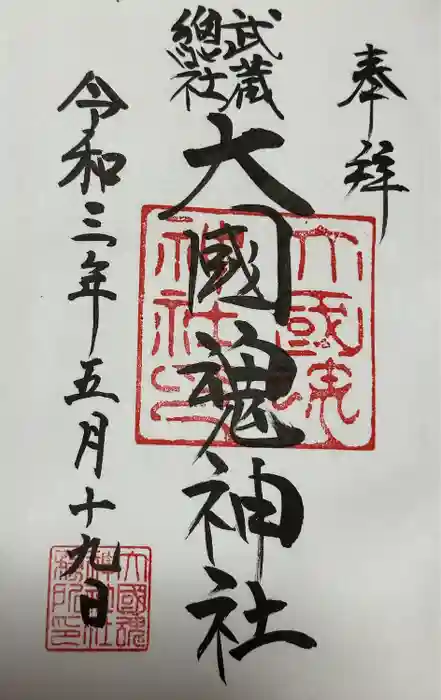 奉拝
武蔵
總社
大國魂神社
令和三年五月十九日
大國魂
神社印
大國魂
神社
務所印